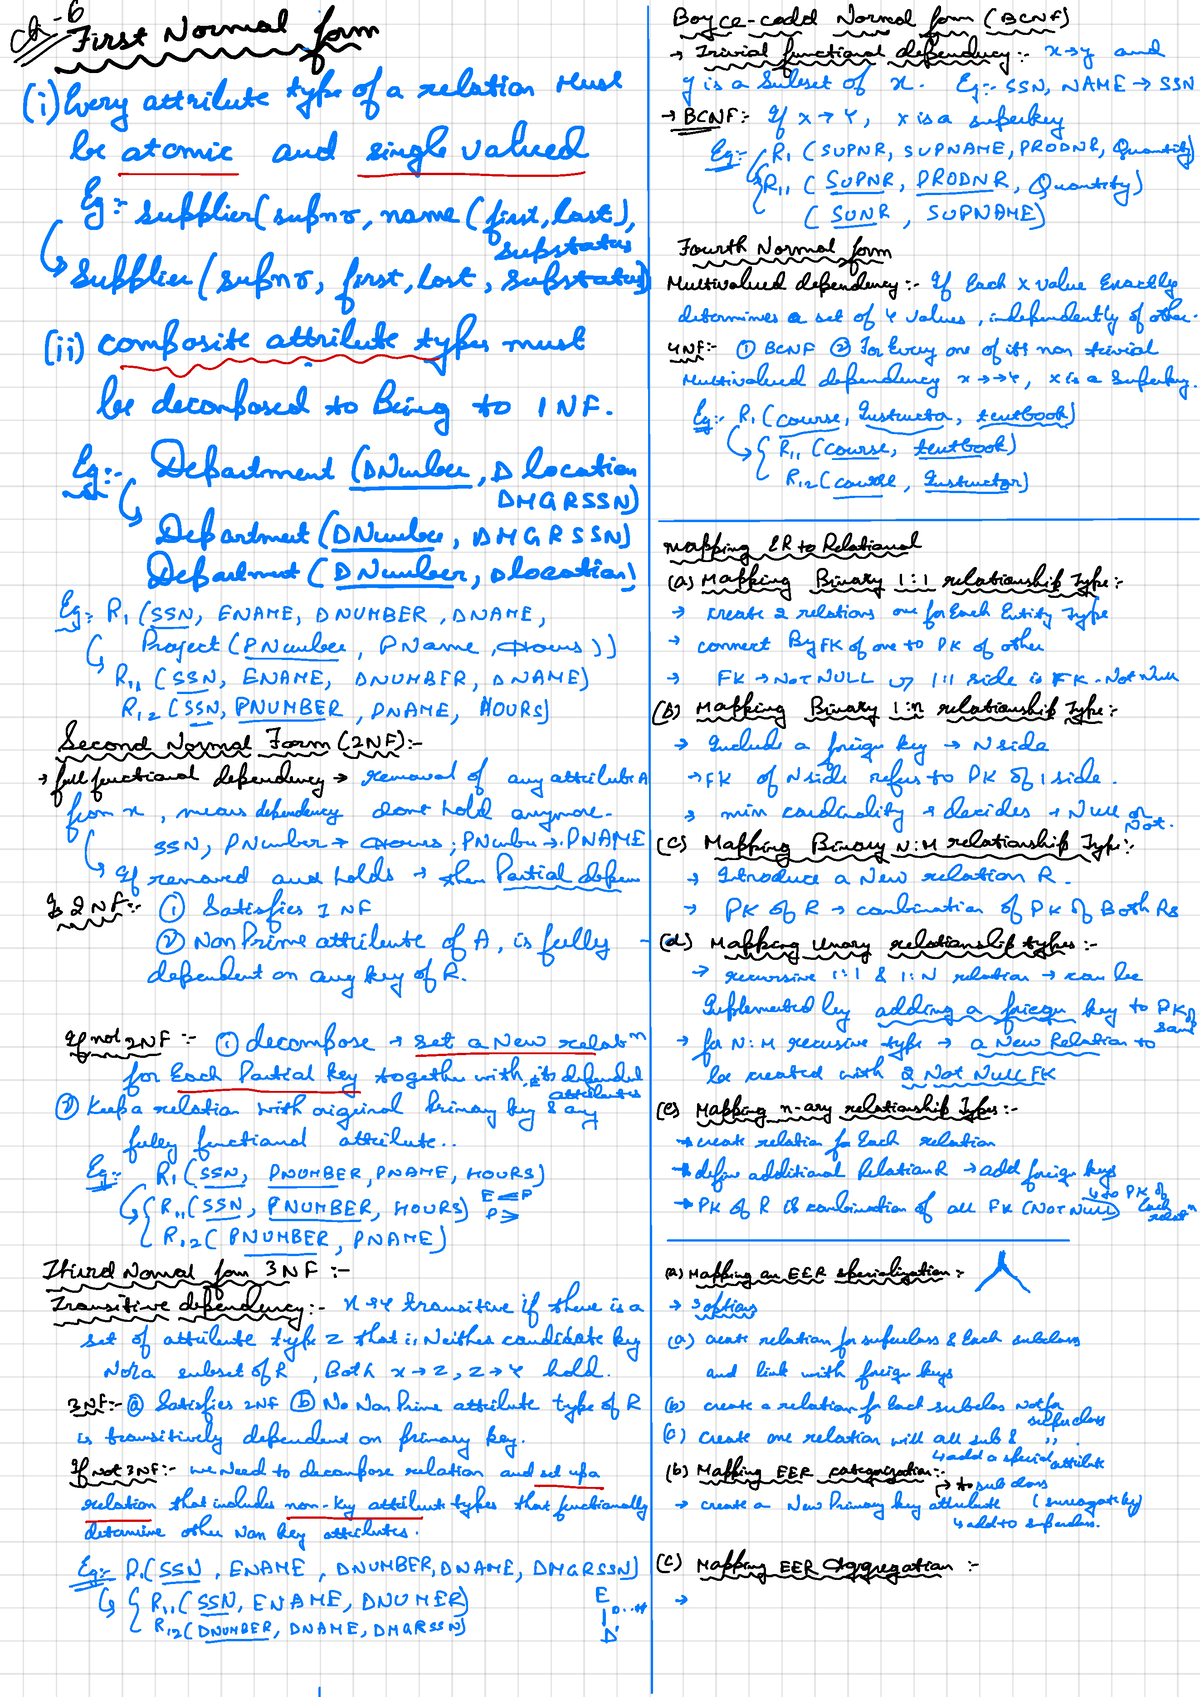 Ch-6
First Normal form
(i) Every attribute type of a relation must
be atomic and single valued
Eg:- Supplier(supnr, name (first, last),
substatus
Supplier (supnr, first, last, substatus)
(ii) composite attribute types must
be decomposed to Being to 1NF.
Eg:- Department (DNumber, Dlocation
DMGRSSN)
Department (DNumber, DMGRSSN)
Department (DNumber, Dlocation)
Eg:- R1 (SSN, ENAME, DNUMBER, DNAME,
Project (PNumber, PName, Hours))
R11 (SSN, ENAME, DNUMBER, DNAME)
R12 (SSN, PNUMBER, PNAME, HOURS)
Second Normal Form (2NF):-
→ full functional dependency → removal of any attribute A
from x, means dependency dont hold anymore.
SSN, PNumber → Hours; PNumber → PNAME
If removed and holds → then Partial depen
Is 2NF:- ① Satisfies 1NF
② Non Prime attribute of A, is fully
dependent on any key of R.
If not 2NF :- ① decompose → set a New relatn
for Each Partial key together with its dependent
attributes
② Keep a relation with original primary key & any
fully functional attribute..
Eg:- R1 (SSN, PNUMBER, PNAME, HOURS)
R11 (SSN, PNUMBER, HOURS)
R12 (PNUMBER, PNAME)
Third Normal form 3NF :-
Transitive dependency:- x→y transitive if there is a
set of attribute type z that is Neither candidate key
Nor a subset of R, Both x→z, z→y hold.
3NF:- ⓐ Satisfies 2NF ⓑ No Non Prime attribute type of R
is transitively dependent on primary key.
If not 3NF:- we need to decompose relation and set up a
relation that includes non-key attribute types that functionally
determine other Non key attributes.
Eg:- R1(SSN, ENAME, DNUMBER, DNAME, DMGRSSN)
R11 (SSN, ENAME, DNUMER)
R12 (DNUMBER, DNAME, DMGRSSN)
E
0..*
D
Boyce-codd Normal form (BCNF)
→ Trivial functional dependency:- x→y and
y is a Subset of x. Eg:- SSN, NAME → SSN
→ BCNF:- If x→Y, x is a superkey
Eg:- R1 (SUPNR, SUPNAME, PRODNR, Quantity)
R11 (SUPNR, PRODNR, Quantity)
(SUNR, SUPNAME)
Fourth Normal form
Multivalued dependency:- If Each x value Exactly
determines a set of Y values, independently of other.
4NF:- ① BCNF ② For Every one of its non trivial
Multivalued dependency x→→Y, x is a Superkey.
Eg:- R1 (course, Instructor, textbook)
R11 (course, textbook)
R12 (course, Instructor)
mapping ER to Relational
(a) Mapping Binary 1:1 relationship Type:-
→ create 2 relations one for Each Entity Type
→ connect By FK of one to PK of other
→ FK → NOT NULL 1:1 side is FK - Not Null
(b) Mapping Binary 1:n relationship Type:-
→ Include a foreign key → N side
→ FK of N side refers to PK of 1 side.
→ min cardinality → decides → Null or
Not.
(c) Mapping Binary N:M relationship Type:-
→ Introduce a New relation R.
→ PK of R → combination of PK of Both Rs
(d) Mapping Unary relationship types:-
→ recursive 1:1 & 1:N relation → can be
Implemented by adding a foreign key to PK of
same
→ for N:M recusive type → a New Relation to
be created with 2 Not Null FK
(e) Mapping n-ary relationship Types:-
→ create relation for Each relation
→ define additional Relation R → add foreign keys
→ PK of R is combination of all FK (NOT NULL) ↳ to PK of
Each
relatn
(a) Mapping an EER specialization:-
→ 3 options
(a) create relation for superclass & Each subclass
and link with foreign keys
(b) create a relation for Each subclass Not for
superclass
(c) create one relation will all sub & ,, .
↳ add a special attribute
(b) Mapping EER categorization:-
→ to sub class
→ create a New Primary key attribute (surrogate key)
↳ add to superclass.
(c) Mapping EER Aggregation :-
→